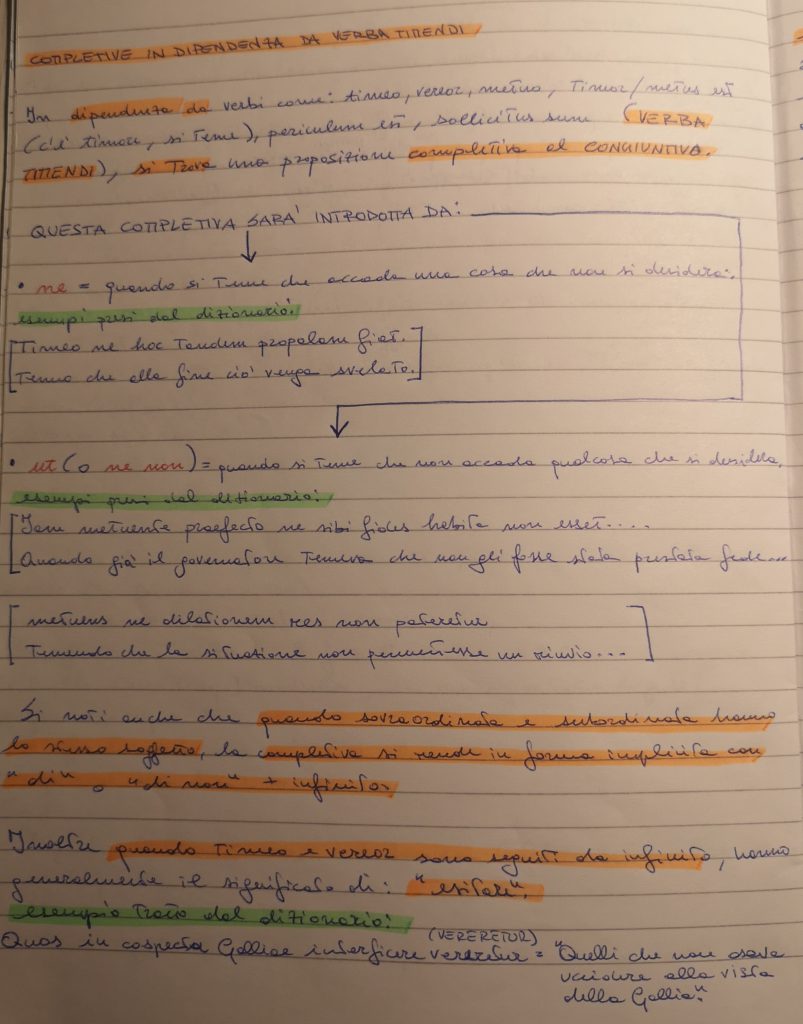 COMPLETIVE IN DIPENDENZA DA VERBA TIMENDI
In dipendenza da verbi come: timeo, vereor, metuo, Timor/metus est
(c'è timore, si teme), periculum est, sollicitus sum (VERBA
TIMENDI), si trova una proposizione completiva al CONGIUNTIVO.
QUESTA COMPLETIVA SARA' INTRODOTTA DA:
• ne = quando si teme che accada una cosa che non si desidera.
esempi presi dal dizionario:
[Timeo ne hoc tandem propalam fiat.
Temo che alla fine ciò venga svelato.]
• ut (o ne non) = quando si teme che non accada qualcosa che si desidera.
esempi presi dal dizionario:
[Iam metuente praefecto ne sibi fides habita non esset....
Quando già il governatore temeva che non gli fosse stata prestata fede...
[metuens ne dilationem res non pateretur
Temendo che la situazione non permettesse un rinvio...]
Si noti anche che quando sovraordinata e subordinata hanno
lo stesso soggetto, la completiva si rende in forma implicita con
"di" o "di non" + infinito.
Inoltre quando timeo e vereor sono seguiti da infinito, hanno
generalmente il significato di: "esitare".
esempio tratto dal dizionario:
(VERERETUR)
Quos in cospectu Galliae interficere vereretur = "Quelli che non osava
uccidere alla vista
della Gallia"